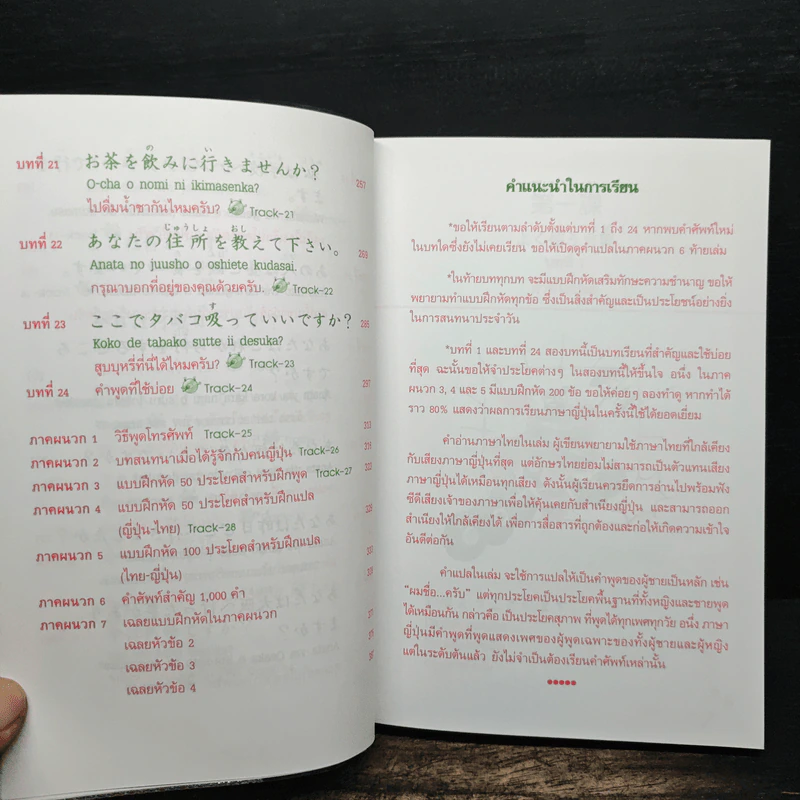 บทที่ 21 お茶を飲みに行きませんか？ 257
の い
O-cha o nomi ni ikimasenka?
ไปดื่มน้ำชากันไหมครับ? Track-21
บทที่ 22 あなたの住所を教えて下さい。 269
じゅうしょ おし
Anata no juusho o oshiete kudasai.
กรุณาบอกที่อยู่ของคุณด้วยครับ. Track-22
บทที่ 23 ここでタバコ吸っていいですか？ 285
す
Koko de tabako sutte ii desuka?
สูบบุหรี่ที่นี่ได้ไหมครับ? Track-23
บทที่ 24 คำพูดที่ใช้บ่อย Track-24 297
ภาคผนวก 1 วิธีพูดโทรศัพท์ Track-25
ภาคผนวก 2 บทสนทนาเมื่อได้รู้จักกับคนญี่ปุ่น Track-26
ภาคผนวก 3 แบบฝึกหัด 50 ประโยคสำหรับฝึกพูด Track-27
ภาคผนวก 4 แบบฝึกหัด 50 ประโยคสำหรับฝึกแปล
(ญี่ปุ่น-ไทย) Track-28
ภาคผนวก 5 แบบฝึกหัด 100 ประโยคสำหรับฝึกแปล
(ไทย-ญี่ปุ่น)
ภาคผนวก 6 คำศัพท์สำคัญ 1,000 คำ
ภาคผนวก 7 เฉลยแบบฝึกหัดในภาคผนวก
เฉลยหัวข้อ 2
เฉลยหัวข้อ 3
เฉลยหัวข้อ 4
คำแนะนำในการเรียน
*ขอให้เรียนตามลำดับตั้งแต่บทที่ 1 ถึง 24 หากพบคำศัพท์ใหม่
ในบทใดซึ่งยังไม่เคยเรียน ขอให้เปิดดูคำแปลในภาคผนวก 6 ท้ายเล่ม
*ในท้ายบททุกบท จะมีแบบฝึกหัดเสริมทักษะความชำนาญ ขอให้
พยายามทำแบบฝึกหัดทุกข้อ ซึ่งเป็นสิ่งสำคัญและเป็นประโยชน์อย่างยิ่ง
ในการสนทนาประจำวัน
*บทที่ 1 และบทที่ 24 สองบทนี้เป็นบทเรียนที่สำคัญและใช้บ่อย
ที่สุด ฉะนั้นขอให้จำประโยคต่างๆ ในสองบทนี้ให้ขึ้นใจ อนึ่ง ในภาค
ผนวก 3, 4 และ 5 มีแบบฝึกหัด 200 ข้อ ขอให้ค่อยๆ ลองทำดู หากทำได้
ราว 80% แสดงว่าผลการเรียนภาษาญี่ปุ่นในครั้งนี้ใช้ได้ยอดเยี่ยม
คำอ่านภาษาไทยในเล่ม ผู้เขียนพยายามใช้ภาษาไทยที่ใกล้เคียง
กับเสียงภาษาญี่ปุ่นที่สุด แต่อักษรไทยย่อมไม่สามารถเป็นตัวแทนเสียง
ภาษาญี่ปุ่นได้เหมือนทุกเสียง ดังนั้นผู้เรียนควรยึดการอ่านไปพร้อมฟัง
ซีดีเสียงเจ้าของภาษาเพื่อให้คุ้นเคยกับสำเนียงญี่ปุ่น และสามารถออก
สำเนียงให้ใกล้เคียงได้ เพื่อการสื่อสารที่ถูกต้องและก่อให้เกิดความเข้าใจ
อันดีต่อกัน
คำแปลในเล่ม จะใช้การแปลให้เป็นคำพูดของผู้ชายเป็นหลัก เช่น
"ผมชื่อ...ครับ" แต่ทุกประโยคเป็นประโยคพื้นฐานที่ทั้งหญิงและชายพูด
ได้เหมือนกัน กล่าวคือ เป็นประโยคสุภาพ ที่พูดได้ทุกเพศทุกวัย อนึ่ง ภาษา
ญี่ปุ่นมีคำพูดที่พูดแสดงเพศของผู้พูดเฉพาะของทั้งผู้ชายและผู้หญิง
แต่ในระดับต้นแล้ว ยังไม่จำเป็นต้องเรียนคำศัพท์เหล่านั้น